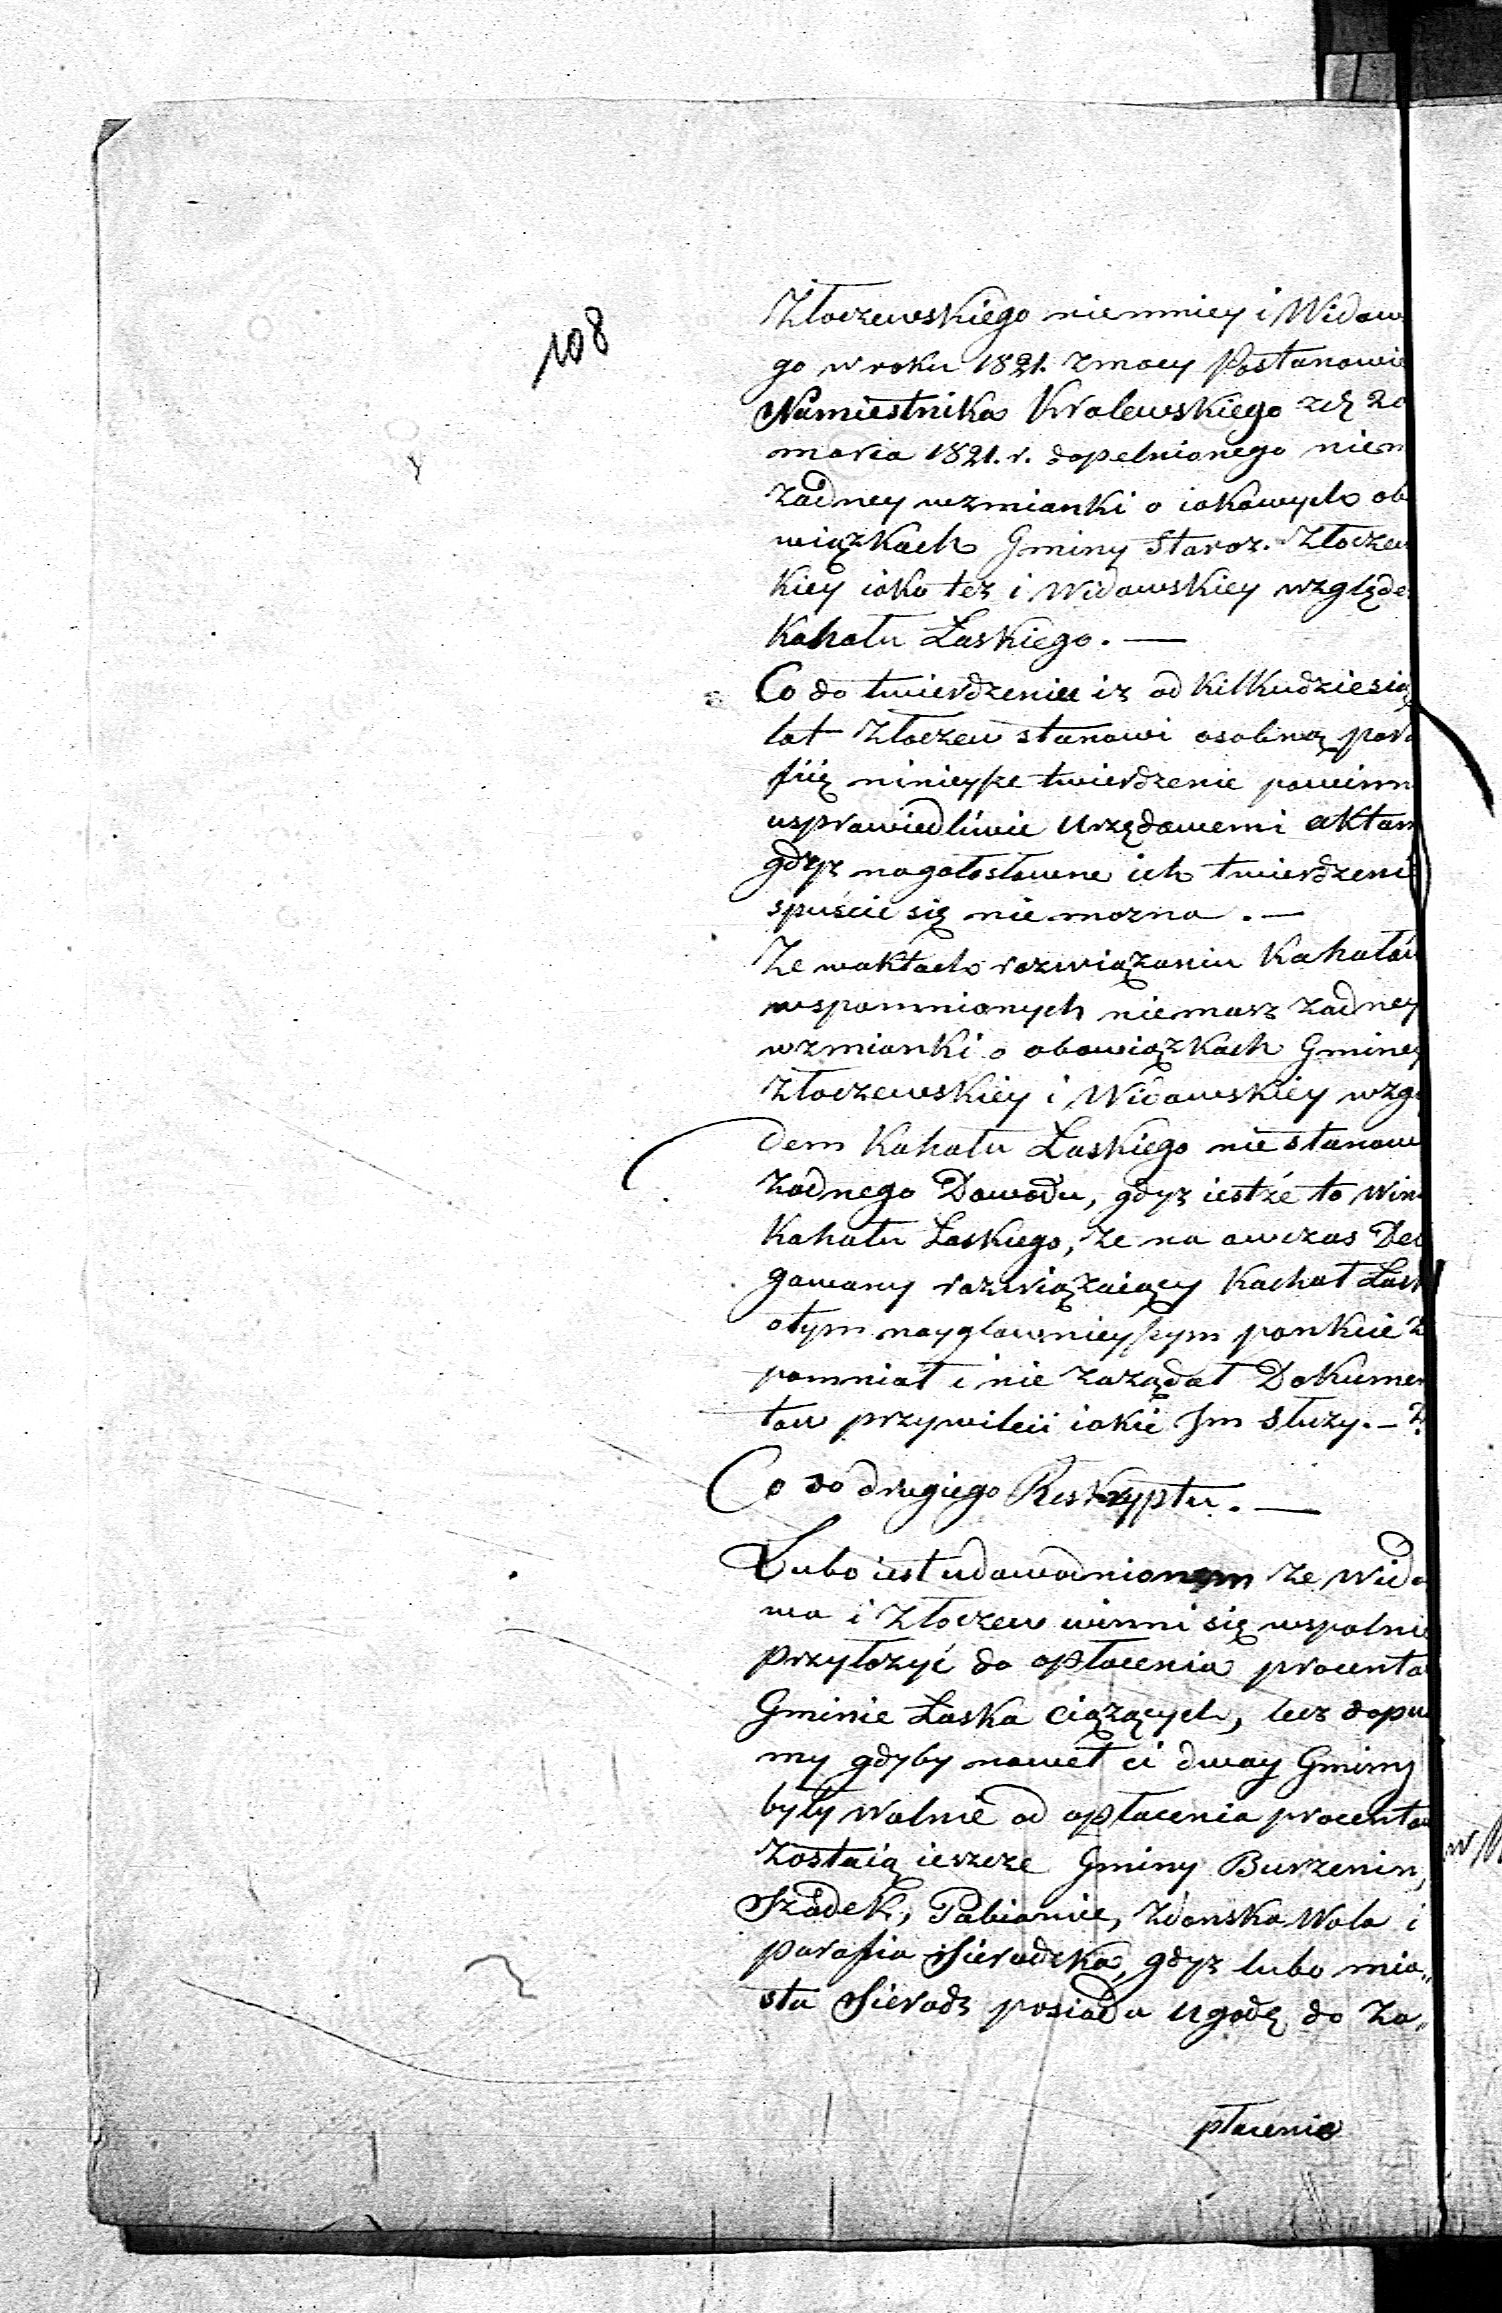 108
Złoczewskiego niemniey i Widaw
go w roku 1821. zmocy Postanowie
Namiestnika Krolewskiego zd 20
marca 1821. r. dopełnionego niem
żadney wzmianki o iakowych ob
wiązkach Gminy Staroz. Złoczew
kiey iako też i Widawskiey względe
Kahału Łaskiego. —
Co do twierdzenia iż od kilkudziesią
lat Złoczew stanowi osobną para
fiię ninieysze twierdzenie powinn
usprawiedliwić urzędowemi aktam
gdyż na gołosłowne ich twierdzenie
spuście się nie można. —
Że w aktach rozwiązaniu Kahałów
wspomnionych niemasz żadney
wzmianki o obowiązkach Gminy
Złoczewskiey i Widawskiey wzglę
dem Kahału Łaskiego nie stanow
żadnego Dowodu, gdyż iestże to win
Kahału Łaskiego, że na owczas Del
gowany rozwiązaiący Kachał Łask
o tym naygłownieyszym punkcie z
pomniał i nie zażądał Dokumen
tow przywileii iakie Im służy. —
Co do drugiego Reskryptu. —
Lubo iest udowodnionem że Wida
wa i Złoczew winni się wspolnie
przyłożyć do opłacenia procento
Gminie Łaska ciążących, lecz dopu
my gdyby nawet ci dway Gminy
były wolnie od opłacenia procentow
zostaią ieszcze Gminy Burzenin,
Szadek, Pabianice, Zdonska Wola i
parafia Sieradzka, gdyż lubo mia„
sta Sieradz posiada ugodę do za„
płacenia